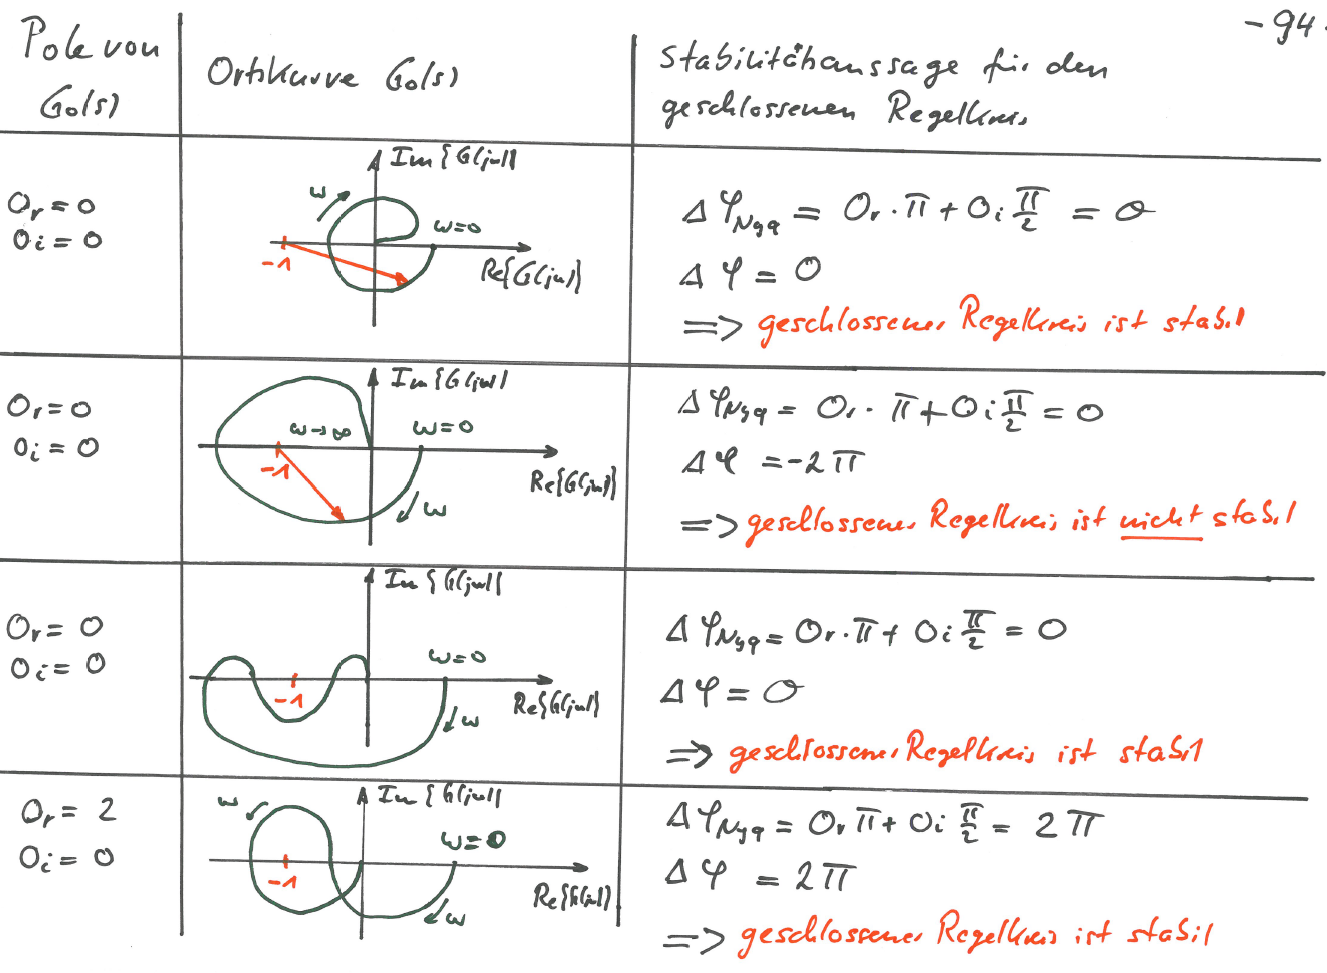 - 94 -
Pole von
Go(s)
Ortskurve Go(s)
Stabilitätsaussage für den
geschlossenen Regelkreis
Or = 0
Oi = 0
Im{G(jω)}
ω
ω=0
-1
Re{G(jω)}
ΔφNyq = Or · π + Oi π/2 = 0
Δφ = 0
=> geschlossener Regelkreis ist stabil
Or = 0
Oi = 0
Im{G(jω)}
ω→∞
ω=0
-1
Re{G(jω)}
ω
ΔφNyq = Or · π + Oi π/2 = 0
Δφ = -2π
=> geschlossener Regelkreis ist nicht stabil
Or = 0
Oi = 0
Im{G(jω)}
ω=0
-1
Re{G(jω)}
ω
ΔφNyq = Or · π + Oi π/2 = 0
Δφ = 0
=> geschlossener Regelkreis ist stabil
Or = 2
Oi = 0
ω
Im{G(jω)}
ω=0
-1
Re{G(jω)}
ω
ΔφNyq = Or π + Oi π/2 = 2π
Δφ = 2π
=> geschlossener Regelkreis ist stabil